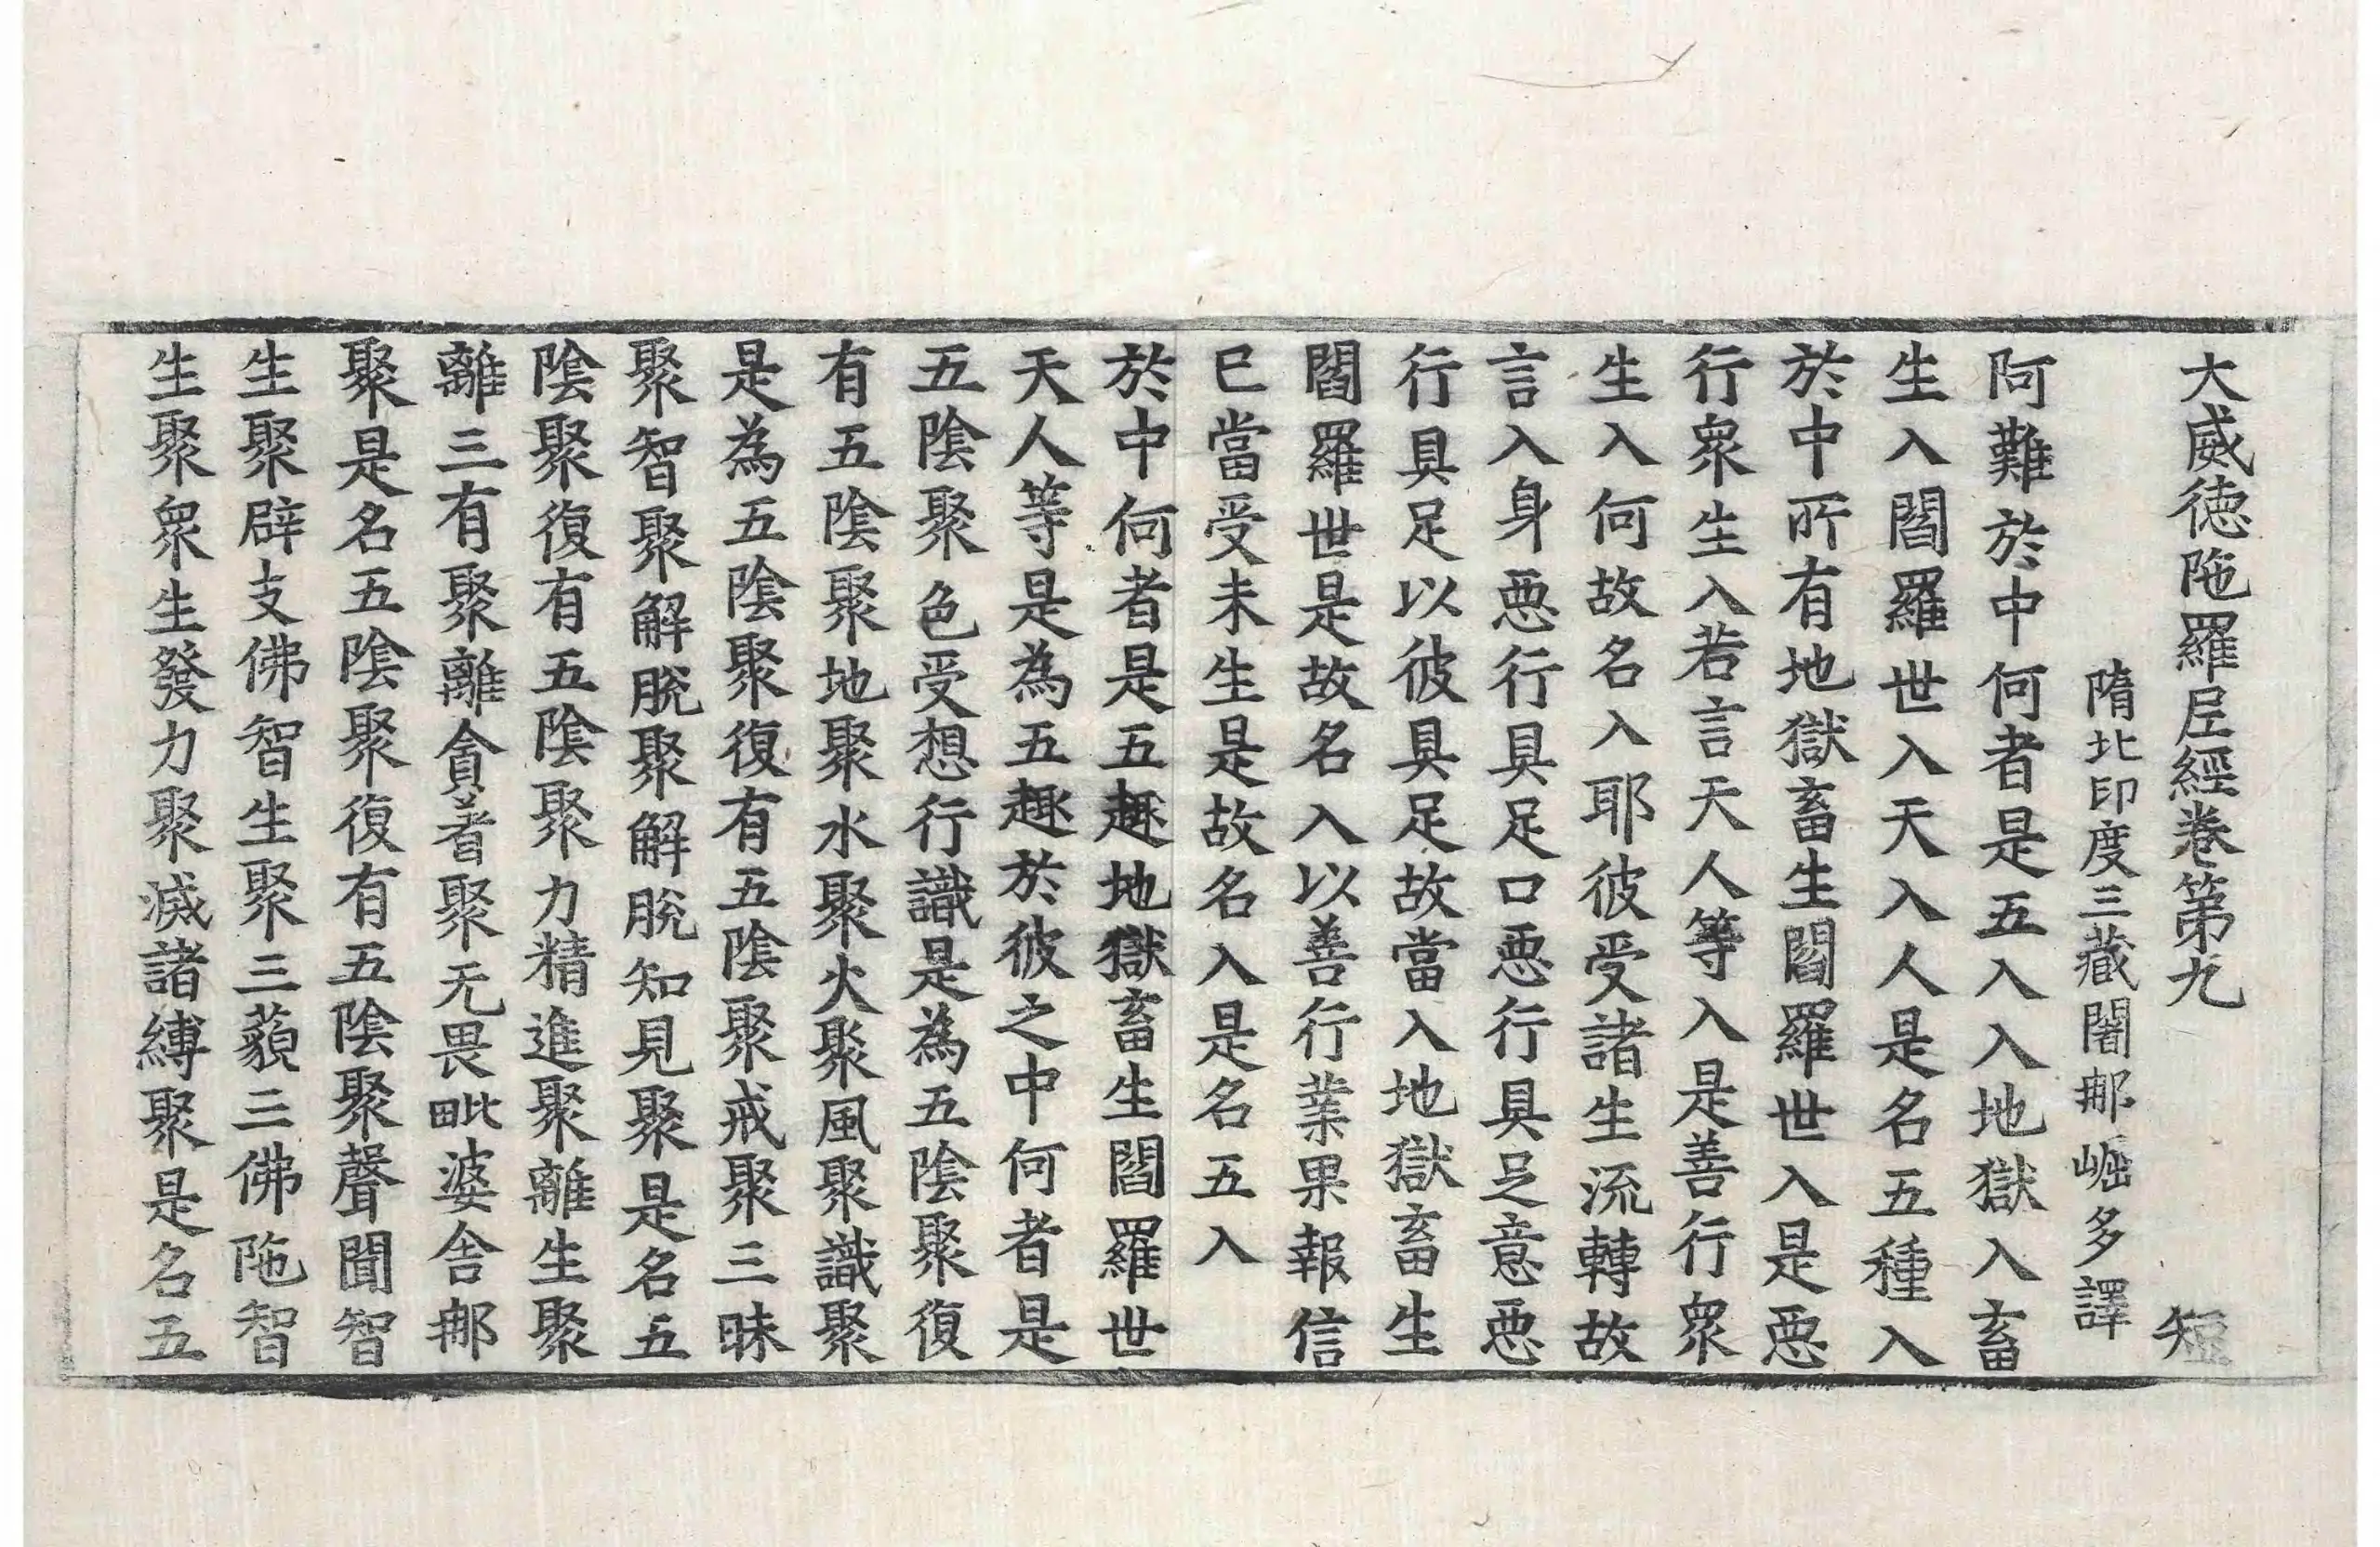 大威徳陁羅𡰱經卷第九 短
隋北印度三藏闍𨚗崛多譯
阿難於中何者是五入入地獄入畜
生入閻羅世入天入人是名五種入
於中所有地獄畜生閻羅世入是惡
行衆生入若言天人等入是善行衆
生入何故名入耶彼受諸生流轉故
言入身惡行具足口惡行具足意惡
行具足以彼具足故當入地獄畜生
閻羅世是故名入以善行業果報信
已當受未生是故名入是名五入
於中何者是五趣地獄畜生閻羅世
天人等是為五趣於彼之中何者是
五陰聚色受想行識是為五陰聚復
有五陰聚地聚水聚火聚風聚識聚
是為五陰聚復有五陰聚戒聚三昧
聚智聚解脫聚解脫知見聚是名五
陰聚復有五陰聚力精進聚離生聚
離三有聚離貪著聚无畏毗婆舍𨚗
聚是名五陰聚復有五陰聚聲聞智
生聚辟支佛智生聚三藐三佛陁智
生聚衆生發力聚滅諸縛聚是名五